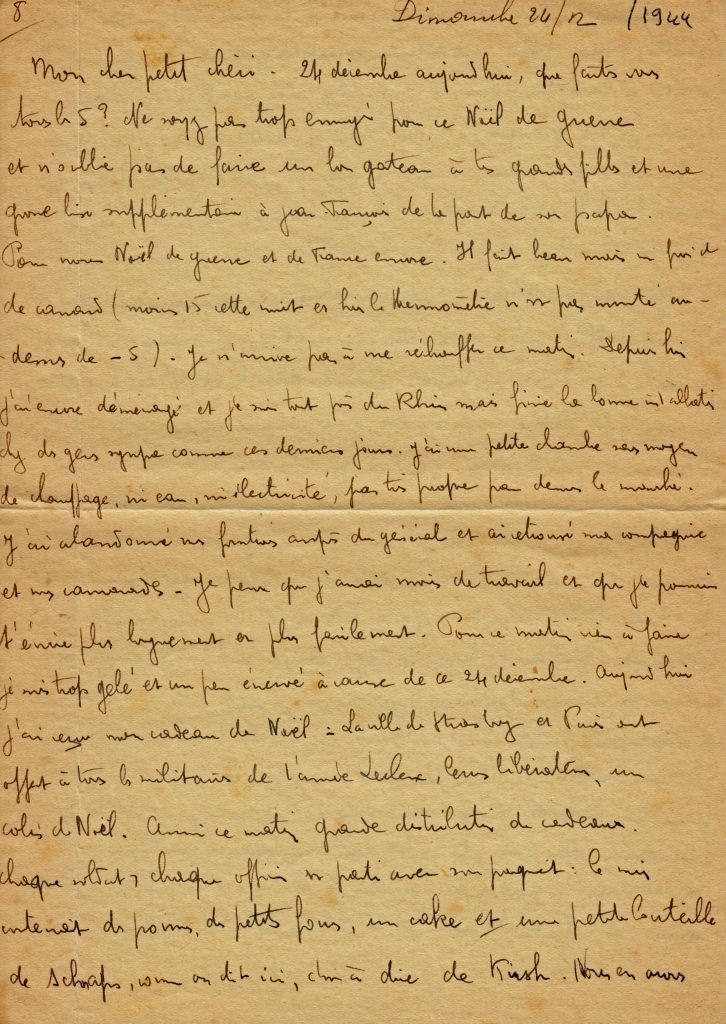 8
Dimanche 24/12/1944
Mon cher petit chéri. 24 décembre aujourd'hui, que faits vous
tous les 5? Ne soyez pas trop ennuyé pour ce Noël de guerre
et n'oublie pas de faire un bon gateau à tes grands filles et une
grosse bise supplémentaire à Jean-François de la part de son papa.
Pour nous Noël de guerre et de France encore. Il fait beau mais un froid
de canard (moins 15 cette nuit et hier le thermomètre n'est pas monté au-
-dessus de -5). Je n'arrive pas à me réchauffer ce matin. Depuis hier
j'ai encore déménagé et je suis tout près du Rhin mais finie la bonne
chez des gens sympa comme ces derniers jours. J'ai une petite chambre sans moyen
de chauffage, ni eau, ni électricité, pas très propre par dessus le marché.
J'ai abandonné mes fonctions auprès du général et ai retrouvé ma compagnie
et mes camarades. Je pense que j'aurai moins de travail et que je pourrai
t'écrire plus longuement et plus facilement. Pour ce matin rien à faire
je suis trop gelé et un peu énervé à cause de ce 24 décembre. Aujourd'hui
j'ai reçu mon cadeau de Noël = La ville de Strasbourg et Paris ont
offert à tous les militaires de l'armée Leclerc, leurs libérateurs, un
colis de Noël. Aussi ce matin grande distribution de cadeaux.
chaque soldat, chaque officier est parti avec son paquet: le mien
contenait des pommes, des petits fours, un cake et une petite bouteille
de schnaps, comme on dit ici, c'est à dire de Kirsh. Nous en avons